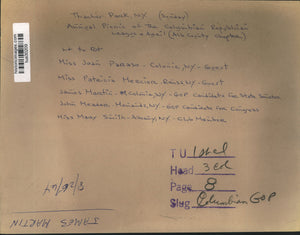 Thacher Park, NY (Sunday)
Annual Picnic of the Columbian Republican
League of Albany (All County Chapter)
L to R
Miss Joan Paraso - Colonie, NY - Guest
Miss Patricia Mercier, NY - Guest
James Martin - Colonie, NY - GOP Candidate for State Senator
John Meader, Menands, NY - GOP Candidate for Congress
Miss Mary Smith - Albany, NY - Club Member
TU
Head 3 Col
Page 8
Slug Columbian GOP
8/26/64
JAMES MARTIN